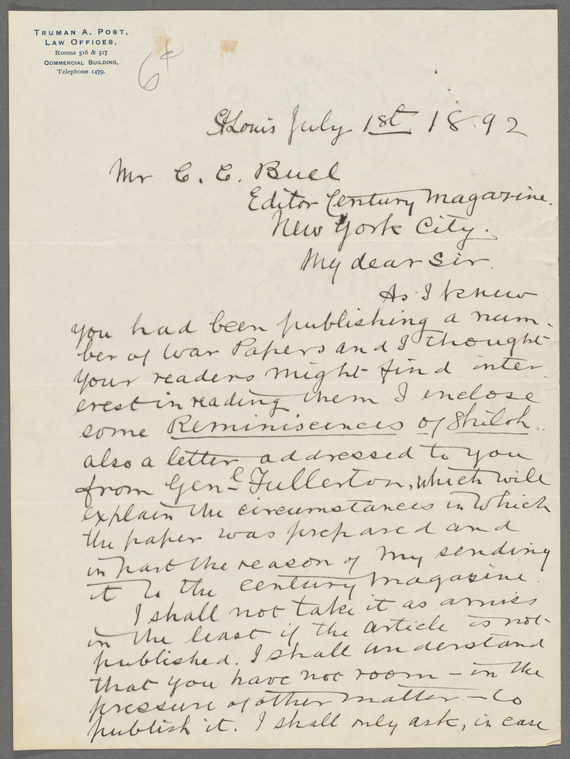 TRUMAN A. POST,
LAW OFFICES,
Rooms 516 & 517
COMMERCIAL BUILDING,
Telephone 1479.
St Louis July 1st 1892
Mr C. C. Buel
Editor Century Magazine.
New York City.
My dear Sir.
As I knew
you had been publishing a num-
ber of War Papers and I thought
your readers might find inter-
est in reading them I inclose
some Reminiscences of Shiloh..
also a letter addressed to you
from Genl Fullerton, which will
explain the circumstances in which
the paper was prepared and
in part the reason of my sending
it to the century magazine.
I shall not take it as amiss
in the least if the article is not
published. I shall understand
that you have not room - in the
pressure of other matter - to
publish it. I shall only ask, in case